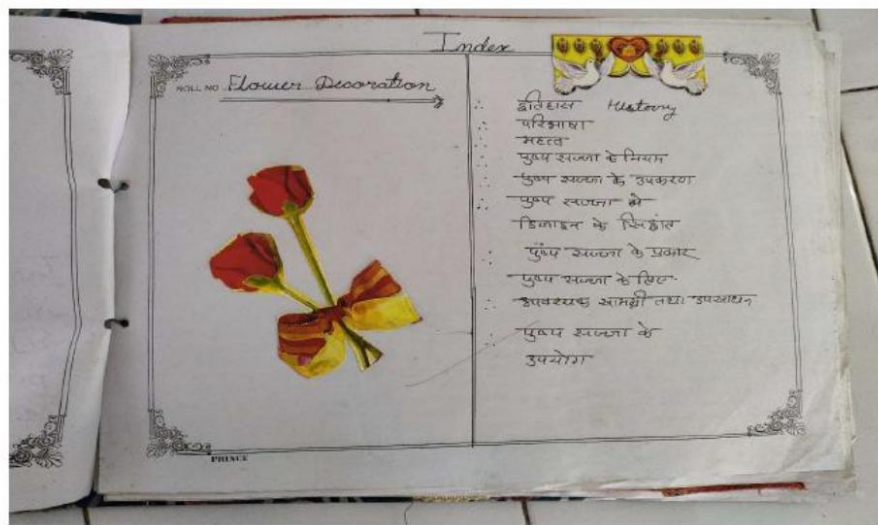 Index
ROLL NO. Flower Decoration
इतिहास History
परिभाषा
महत्व
पुष्प सज्जा के नियम
पुष्प सज्जा के उपकरण
पुष्प सज्जा के
डिजाइन के सिद्धांत
पुष्प सज्जा के प्रकार
पुष्प सज्जा के लिए
आवश्यक सामग्री तथा उपसाधन
पुष्प सज्जा के
उपयोग
PRINCE